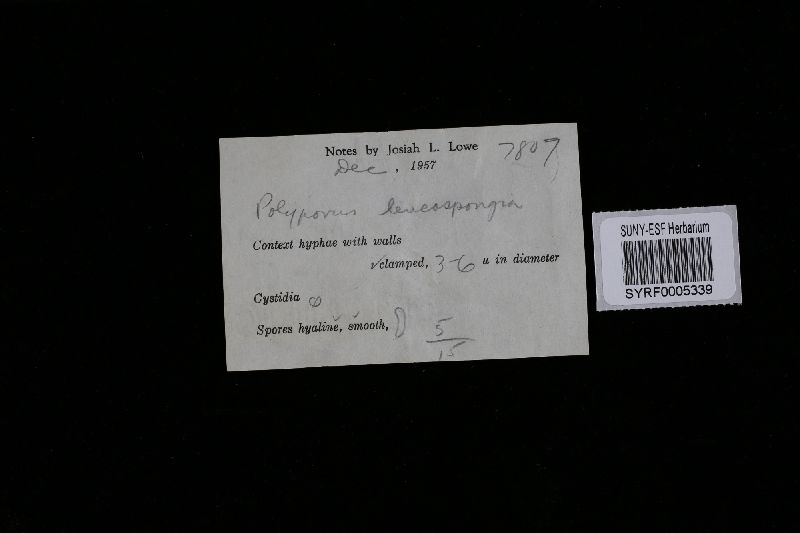 Notes by Josiah L. Lowe 7807
Dec , 1957
Polyporus leucospongia
Context hyphae with walls
✓clamped, 3-6 u in diameter
Cystidia φ
Spores hyaline, smooth,
5
15
SUNY-ESF Herbarium
SYRF0005339